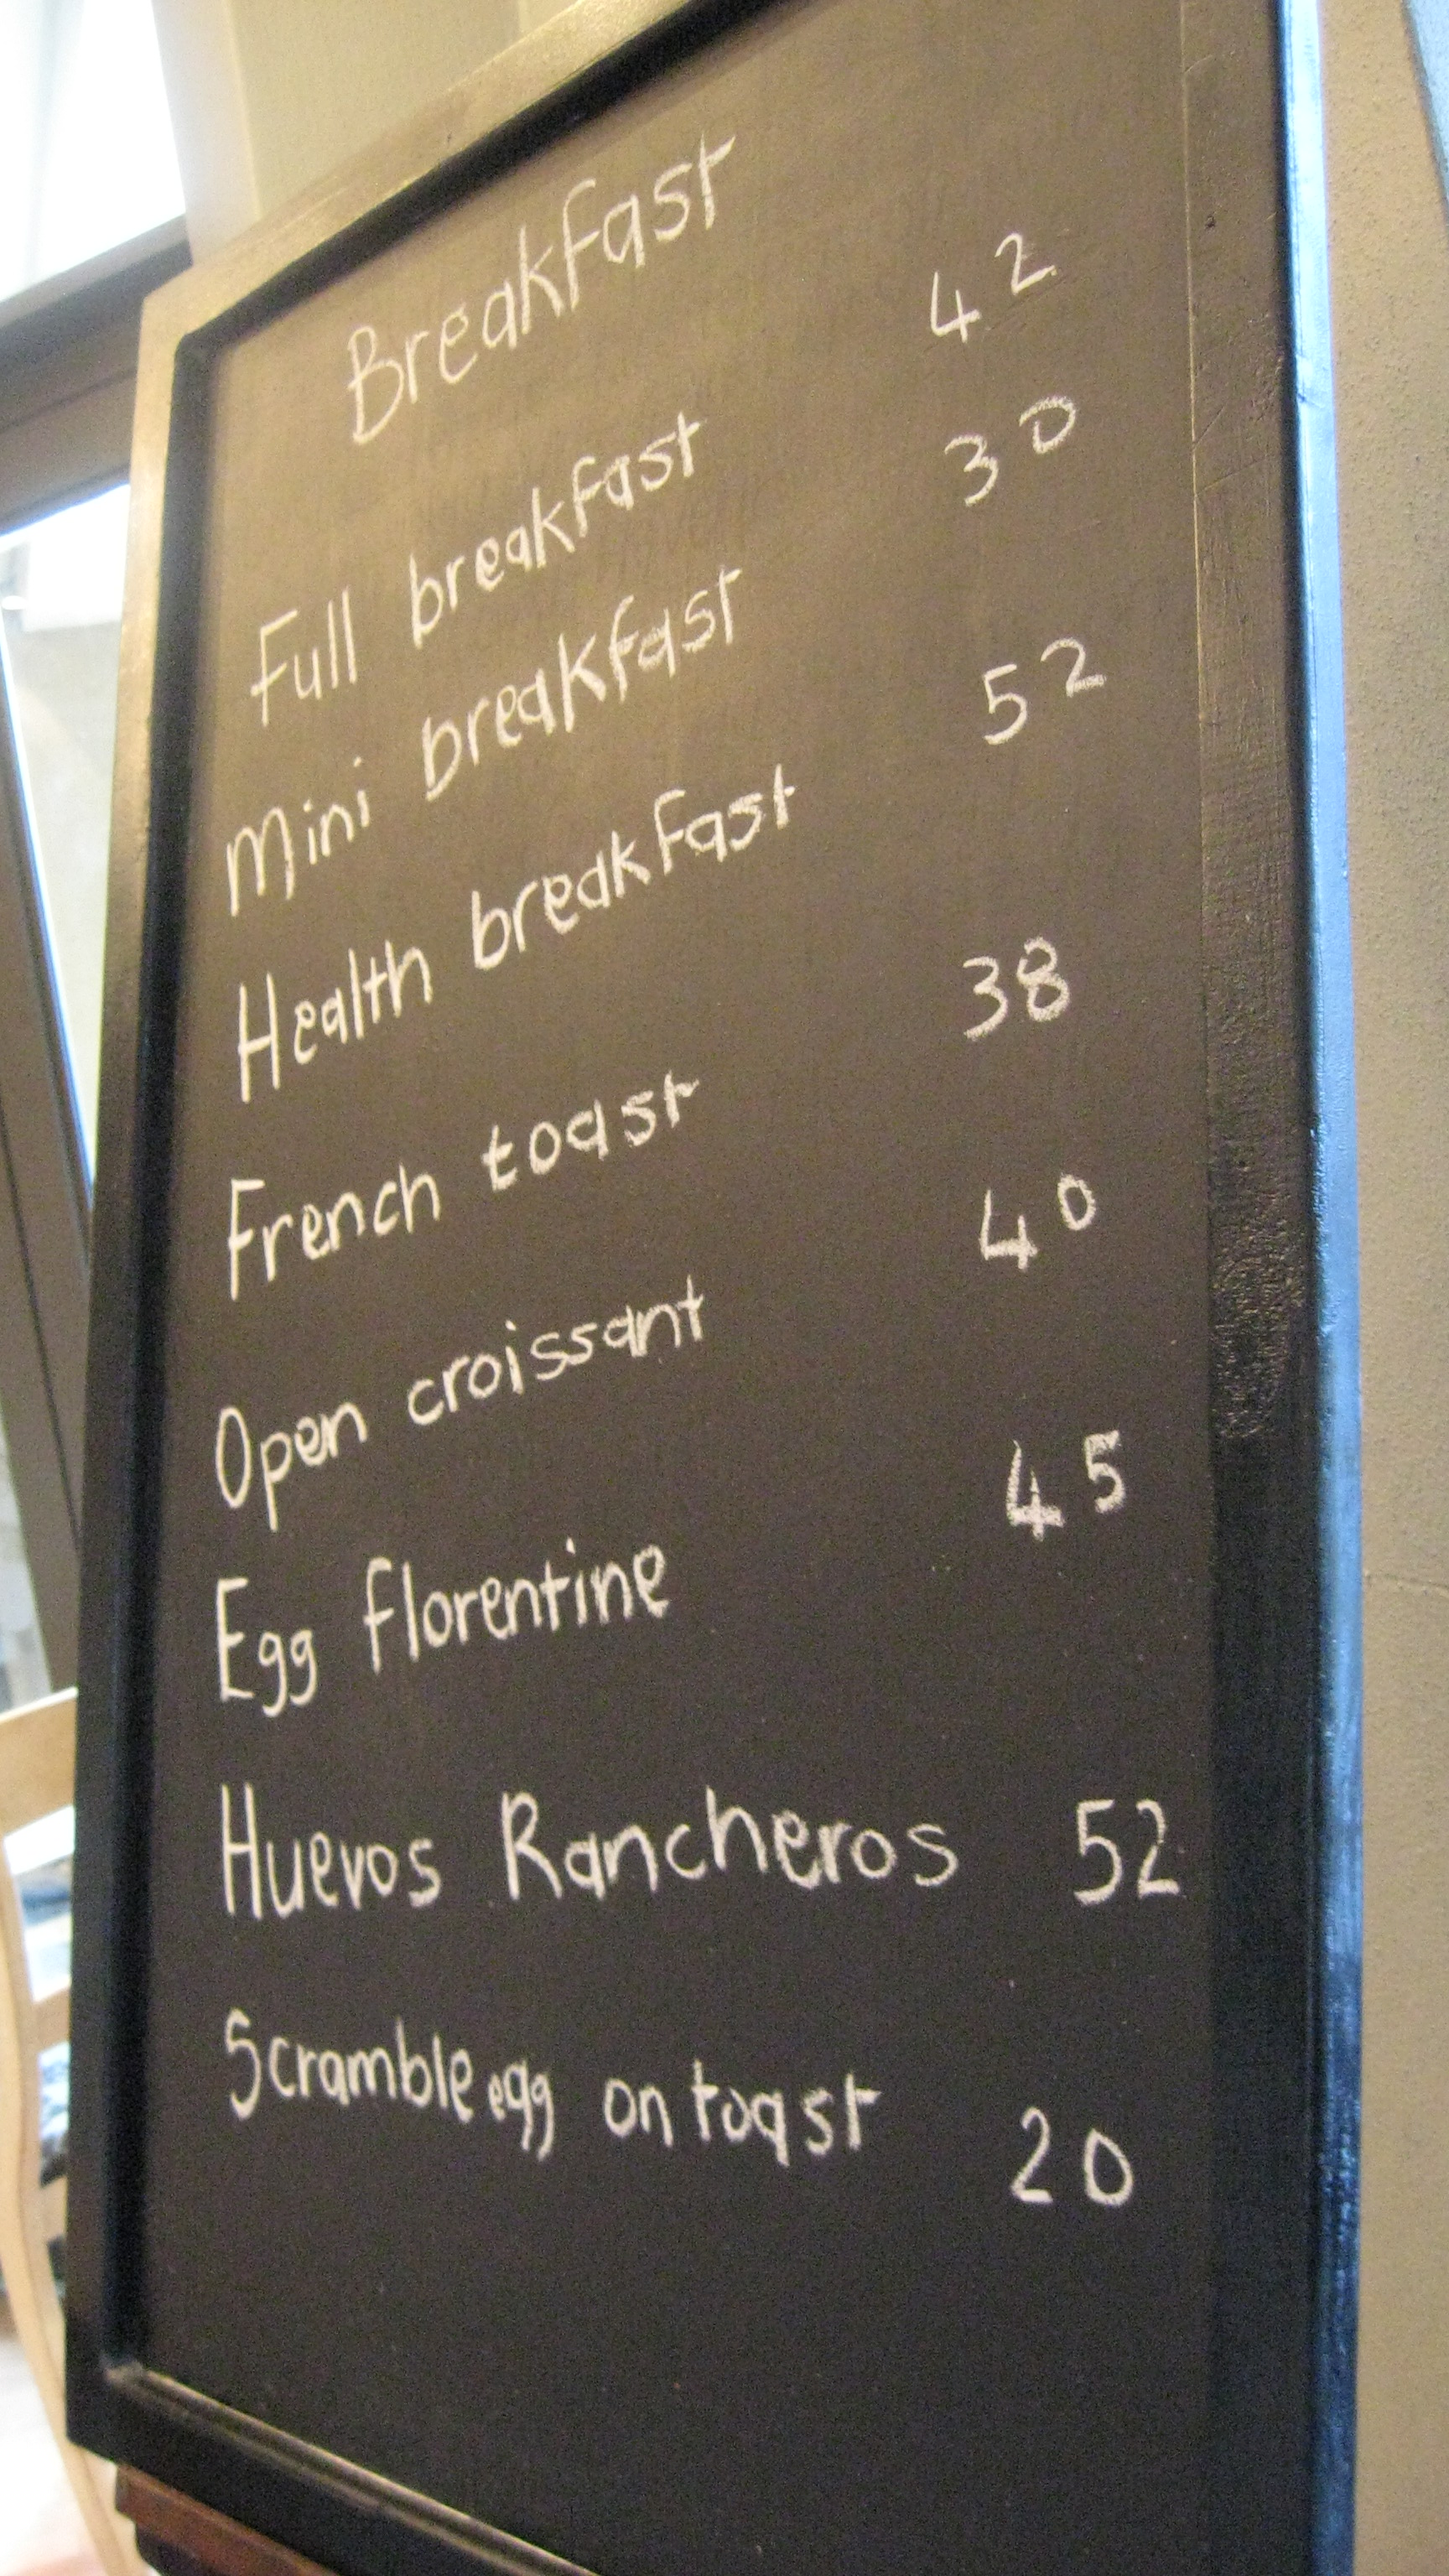 Breakfast
Full breakfast 42
Mini breakfast 30
Health breakfast 52
French toast 38
Open croissant 40
Egg florentine 45
Huevos Rancheros 52
Scramble egg on toast 20